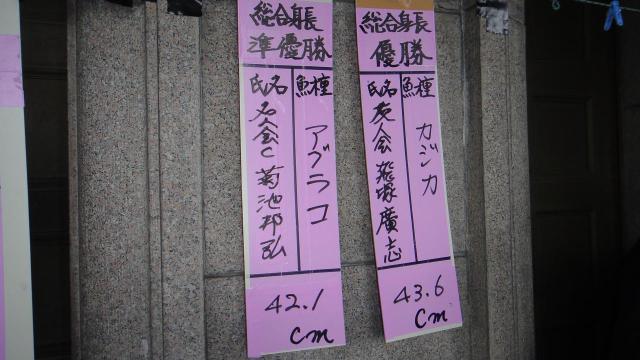 総合身長
優勝
魚種
カジカ
氏名
友会
廣志
43.6
cm
総合身長
準優勝
魚種
アブラコ
氏名
名人会C 菊池邦弘
42.1
cm